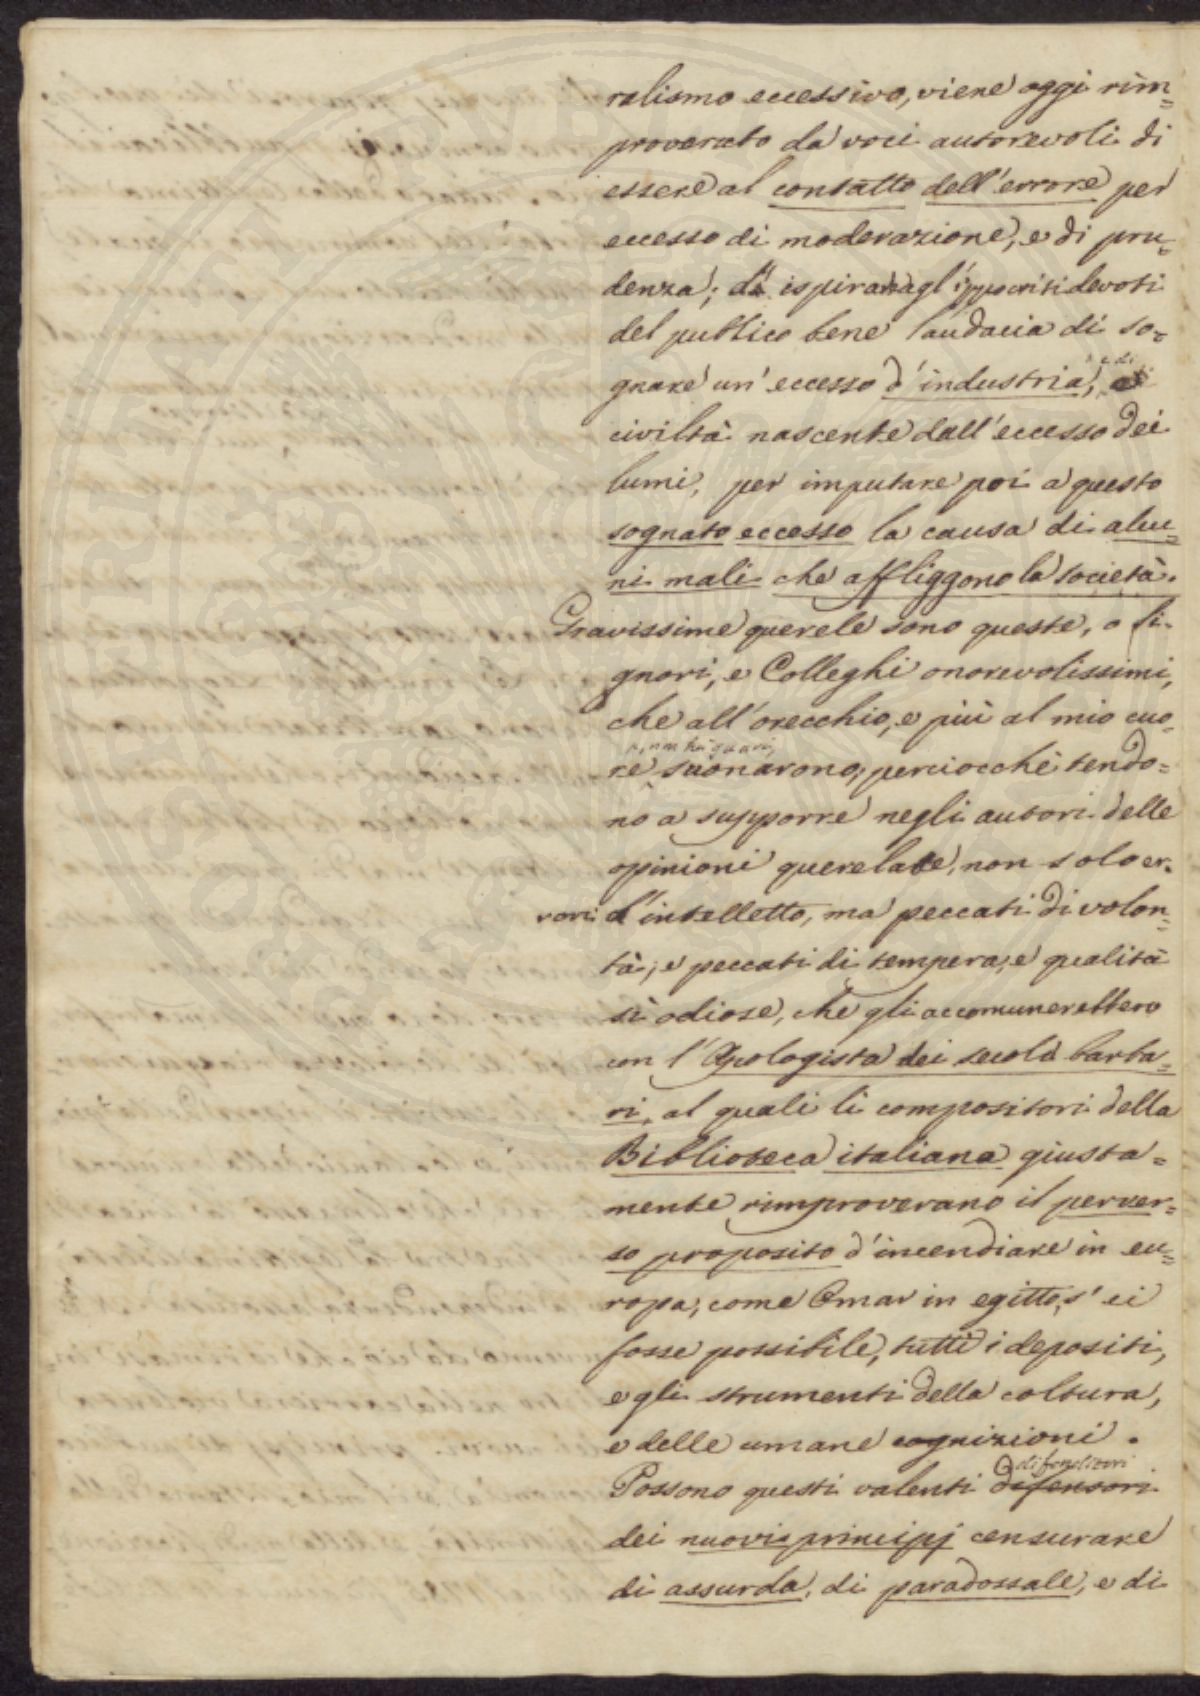 ralismo eccessivo, viene oggi rim=
proverato da voci autorevoli di
essere al contatto dell'errore per
eccesso di moderazione, e di pru=
denza; d' ispirar agl'ippocriti devoti
del publico bene l'audacia di so=
gnare un'eccesso d'industria, e di
civiltà nascente dall'eccesso dei
lumi, per imputare poi a questo
sognato eccesso la causa di alcu=
ni mali che affliggono la società.
Gravissime querele sono queste, o Si=
gnori, e Colleghi onorevolissimi,
che all'orecchio, e più al mio cuo=
re suonarono, perciocchè tendo=
no a supporre negli autori delle
opinioni querelate, non solo er=
rori d'intelletto, ma peccati di volon=
tà; e peccati di tempera, e qualità
sì odiose, che gli accomunerebbero
con l'Apologista dei secoli barba=
ri, al quali li compositori della
Biblioteca italiana giusta=
mente rimproverano il perver=
so proposito d'incendiare in eu=
ropa, come Omar in egitto, s'ei
fosse possibile, tutti i depositi,
e gli strumenti della coltura,
e delle umane cognizioni.
difenditori
Possono questi valenti difensori
dei nuovi principj censurare
di assurda, di paradossale, e di